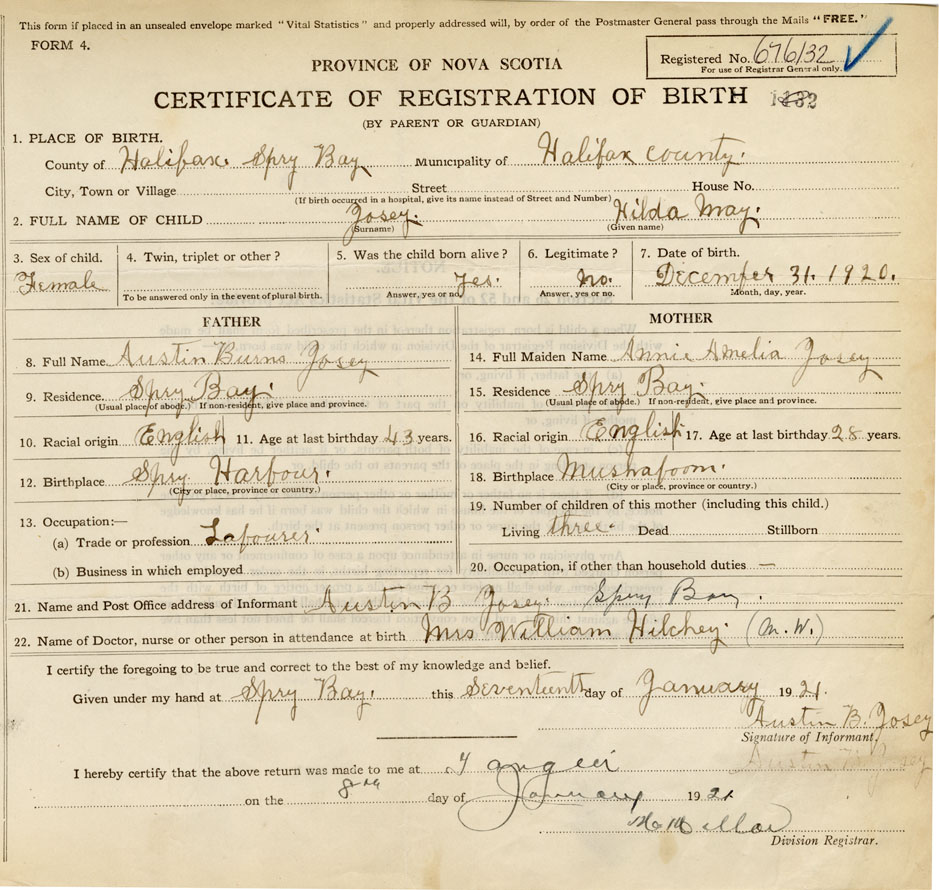 This form if placed in an unsealed envelope marked "Vital Statistics" and properly addressed will, by order of the Postmaster General pass through the Mails "FREE."
FORM 4.
Registered No. 676132
For use of Registrar General only.
PROVINCE OF NOVA SCOTIA
CERTIFICATE OF REGISTRATION OF BIRTH
(BY PARENT OR GUARDIAN)
1. PLACE OF BIRTH.
County of Halifax. Spry Bay Municipality of Halifax county.
City, Town or Village Street House No.
(If birth occurred in a hospital, give its name instead of Street and Number)
2. FULL NAME OF CHILD Josey. Hilda May.
(Surname) (Given name)
3. Sex of child. 4. Twin, triplet or other? 5. Was the child born alive? 6. Legitimate? 7. Date of birth.
Female Yes. no. December 31. 1920.
To be answered only in the event of plural birth. Answer, yes or no. Answer, yes or no. Month, day, year.
FATHER
8. Full Name Austin Burns Josey
9. Residence Spry Bay.
(Usual place of abode.) If non-resident, give place and province.
10. Racial origin English 11. Age at last birthday 43 years.
12. Birthplace Spry Harbour.
(City or place, province or country.)
13. Occupation:—
(a) Trade or profession Labourer
(b) Business in which employed
MOTHER
14. Full Maiden Name Annie Amelia Josey
15. Residence Spry Bay.
(Usual place of abode.) If non-resident, give place and province.
16. Racial origin English 17. Age at last birthday 28 years.
18. Birthplace Mushaboom.
(City or place, province or country.)
19. Number of children of this mother (including this child.)
Living three. Dead Stillborn
20. Occupation, if other than household duties —
21. Name and Post Office address of Informant Austin B Josey. Spry Bay.
22. Name of Doctor, nurse or other person in attendance at birth Mrs William Hilchey. (M.W.)
I certify the foregoing to be true and correct to the best of my knowledge and belief.
Given under my hand at Spry Bay. this Seventeenth day of January 1921.
Austin B. Josey
Signature of Informant.
I hereby certify that the above return was made to me at Tangier
on the day of January 1921
Division Registrar.